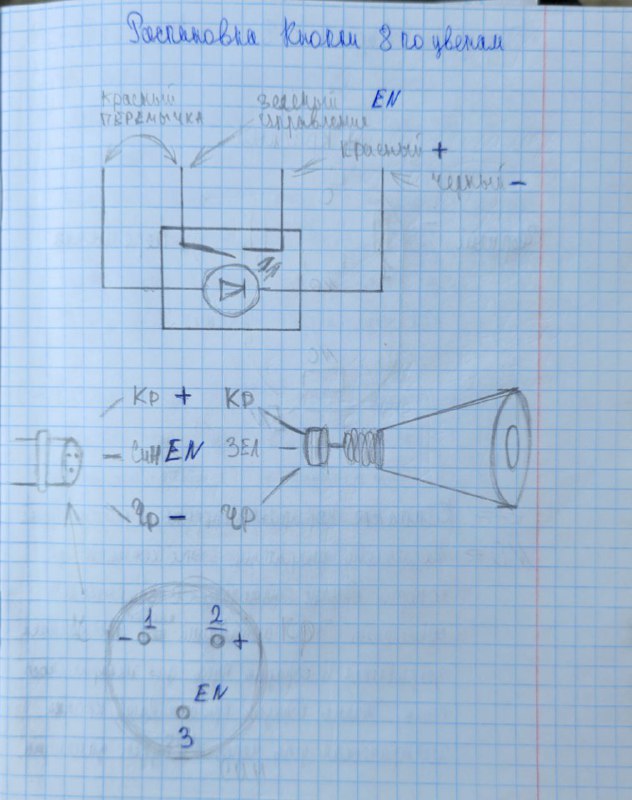 Распиновка Кнопки 8 по цветам
красный
ПЕРЕМЫЧКА
зеленый EN
управление
красный +
черный -
КР + КР
Син EN ЗЕЛ
Чр - ЧР
1 2
- +
EN
3